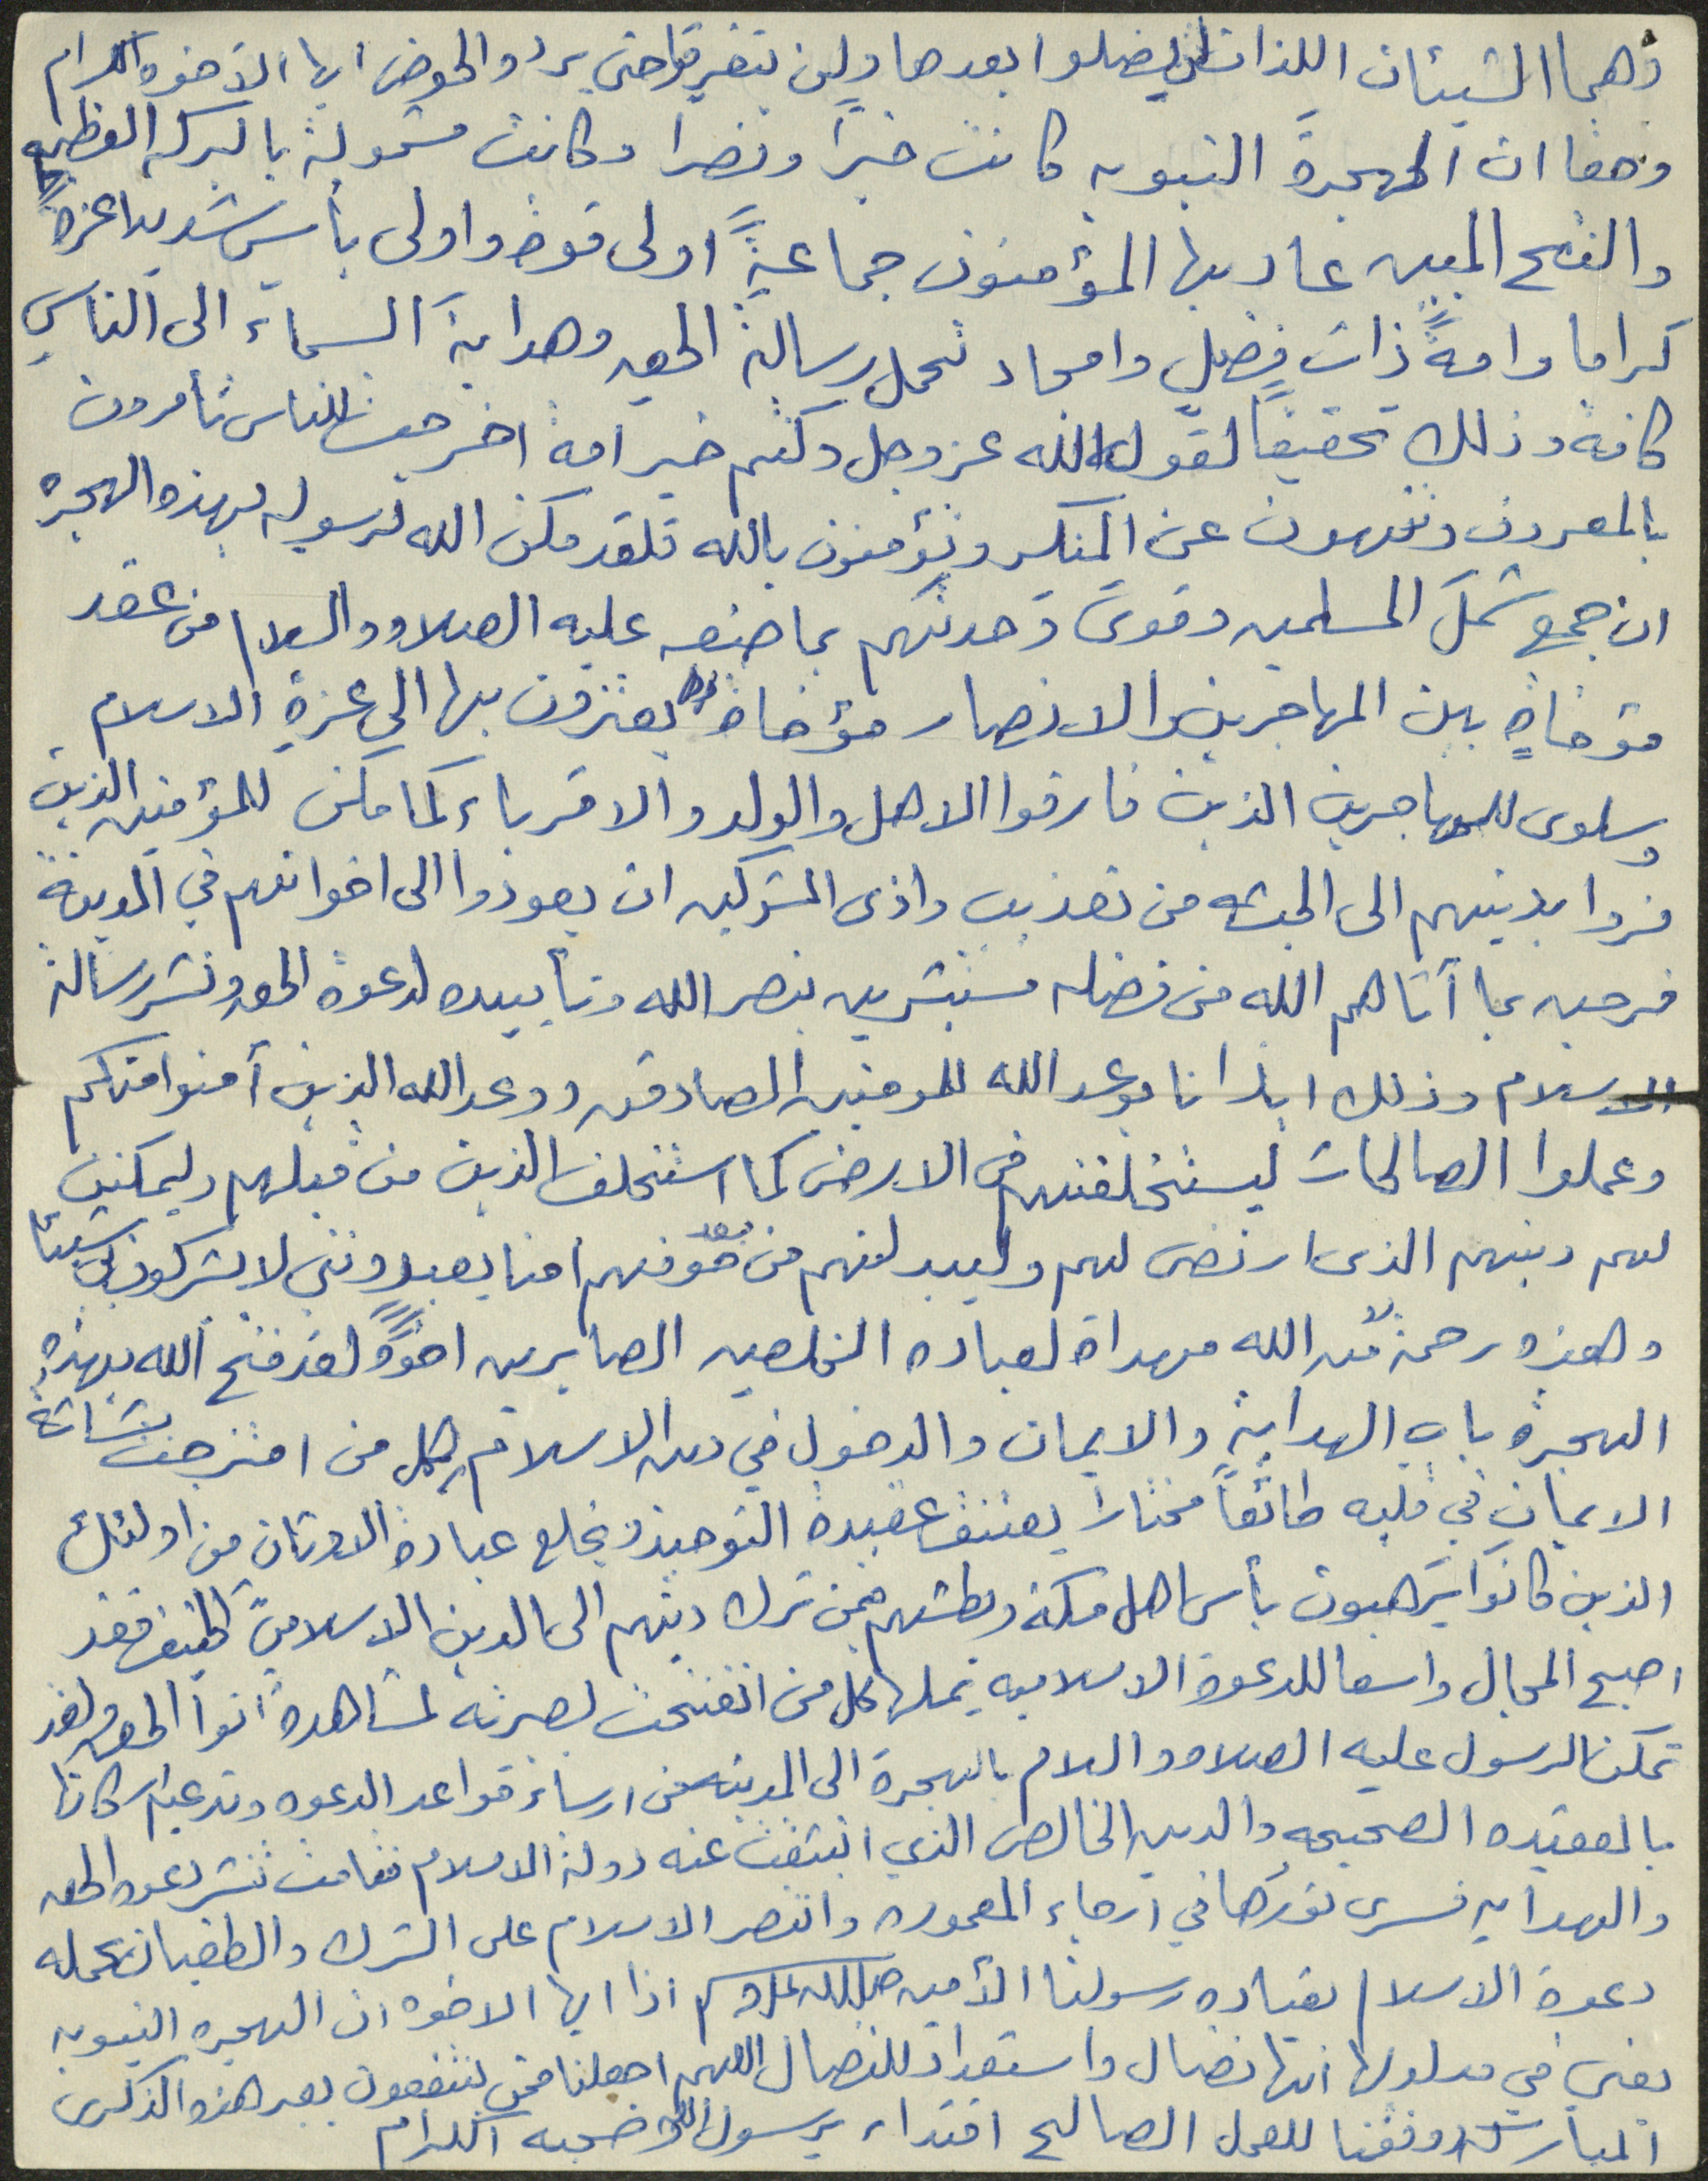 وهما الشيئان اللذان لن يضلوا بعدها ولن يتفرقا حتى يردوا الحوض ايها الاخوه الكرام
وحقا ان الهجرة النبويه كانت خيراً ونصرا وكانت مشمولة بالبركه العظيمه
والفتح المبين عاد بها المؤمنون جماعةً اولى قوة واولى بأس شديد اعزةً
كراما وامةً ذات فضلٍ وامجاد تحمل رسالة الحق وهداية السماء الى الناس
كافة وذلك تحقيقاً لقول الله عز وجل وكنتم خير امة اخرجت للناس تأمرون
بالمعروف وتنهون عن المنكر وتؤمنون بالله فلقد مكن الله لرسوله بهذه الهجره
ان جمع شمل المسلمين وقوى وحدتهم بما صنعه عليه الصلاه والسلام من عقد
مؤخاةٍ بين المهاجرين والانصار مؤخاة يعتزون بها الى عزة الاسلام
وسلوى للمهاجرين الذين فارقوا الاهل والولد والاقرباء كما مكن للمؤمنين الذين
فروا بدينهم الى الحبشه من تعذيب واذى المشركين ان يعودوا الى اخوانهم في المدينة
فرحين بما آتاهم الله من فضله مستبشرين بنصر الله وتأييده لدعوة الحق ونشر رسالة
الاسلام وذلك ايذانا بوعد الله للمومنين الصادقين ووعد الله الذين آمنوا منكم
وعملوا الصالحات ليستخلفنهم في الارض كما استخلف الذين من قبلهم وليمكنن
لهم دينهم الذى ارتضى لهم وليبدلنهم من بعد خوفهم امنا يعبدونني لا يشركون بي شيئا
وهذه رحمة من الله مهداة لعباده المخلصين الصابرين اخوةً لقد فتح الله بهذه
الهجرة باب الهداية والايمان والدخول في دين الاسلام لكل من امتزجت بشاشة
الايمان في قلبه طائعاً مختاراً يعتنق عقيدة التوحيد ويخلع عبادة الاوثان من اولئك
الذين كانوا يرهبون بأس اهل مكة وبطشهم فمن ترك دينهم الى الدين الاسلامي الحنيف فقد
اصبح المجال واسعا للدعوة الاسلاميه يحملها كل من انفتحت بصيرته لمشاهدة انوا الحق ولقد
تمكن الرسول عليه الصلاه والسلام بالهجرة الى المدينه من ارساء قواعد الدعوه وتدعيم اركانها
بالعقيده الصحيحه والدين الخالص الذي انبثقت عنه دولة الاسلام فقامت تنشر دعوه الحق
والهدايه فسرى نورها في ارجاء المعموره وانتصر الاسلام على الشرك والطغيان بحمله
دعوة الاسلام بقياده رسولنا الأمين صلى الله عليه وسلم اذا ايها الاخوه ان الهجره النبويه
يعنى في مدلولها انها نضال واستعداد للنضال اللهم اجعلنا ممن ينتفعون بعد هذه الذكرى
المباركه ووفقنا للعمل الصالح اقتداء برسول الله وصحبه الكرام